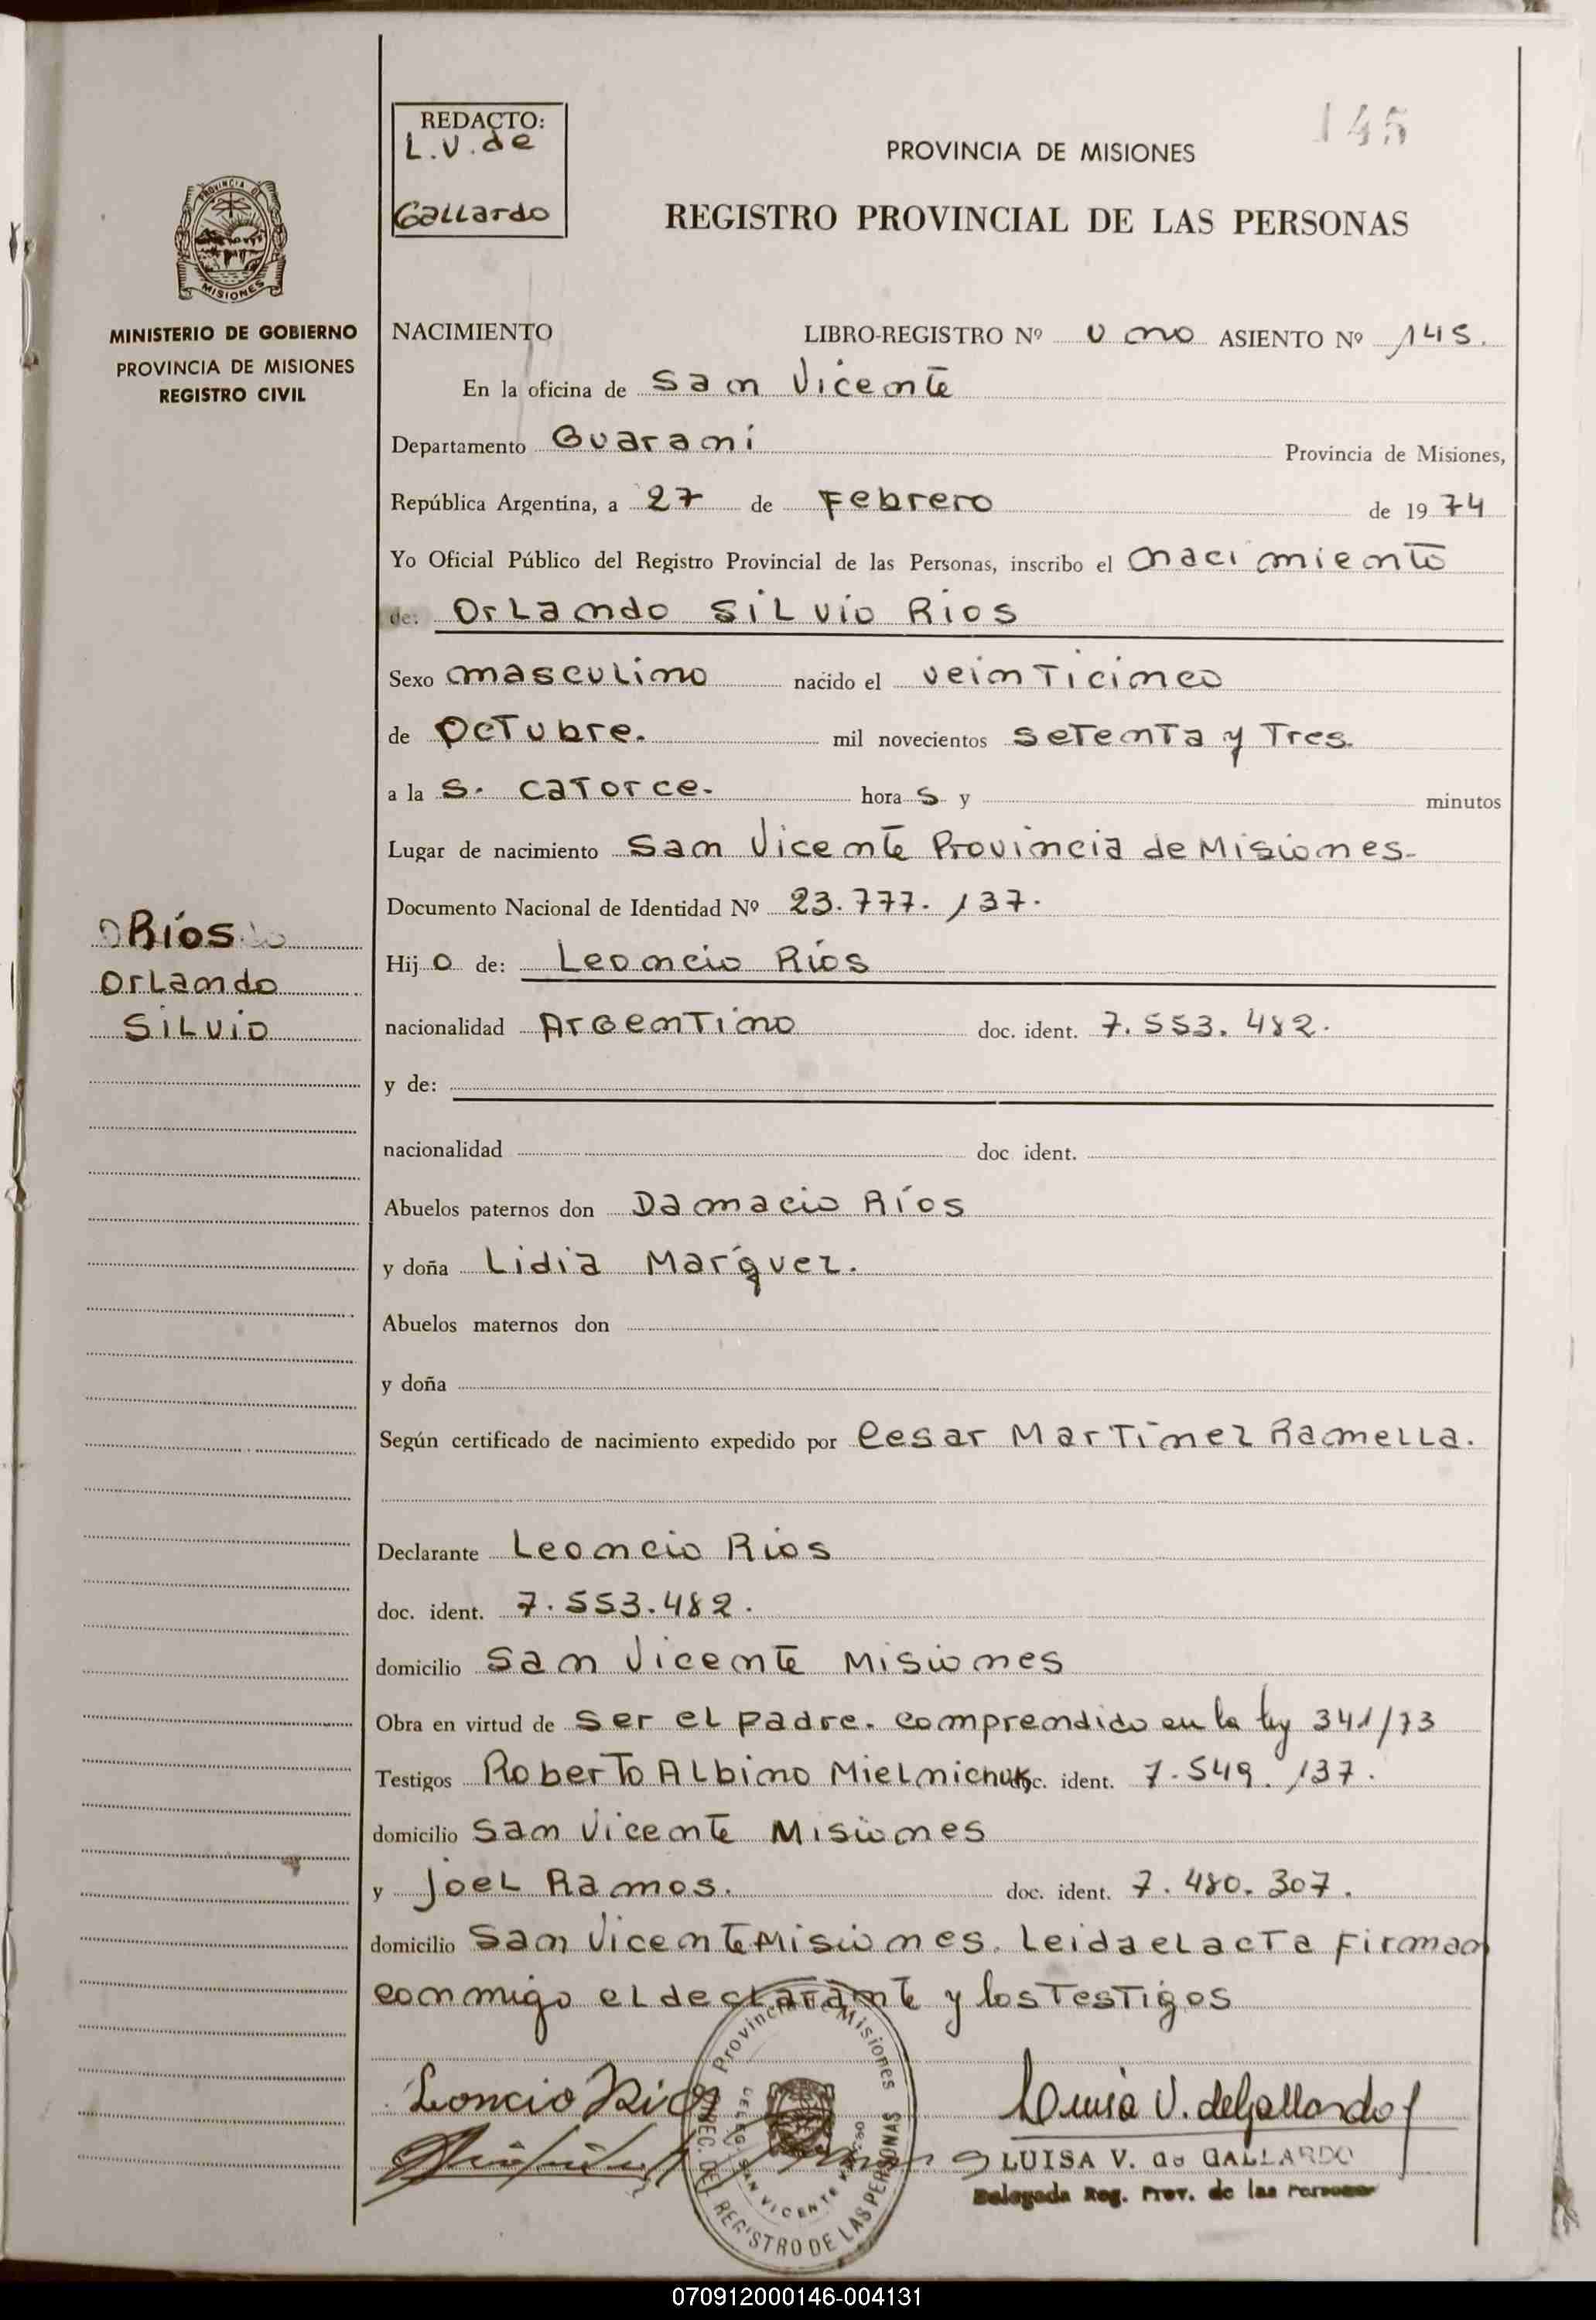 145
REDACTO:
L.V. de
Gallardo
PROVINCIA DE MISIONES
REGISTRO PROVINCIAL DE LAS PERSONAS
PROVINCIA DE
MISIONES
MINISTERIO DE GOBIERNO
PROVINCIA DE MISIONES
REGISTRO CIVIL
NACIMIENTO LIBRO-REGISTRO Nº Uno ASIENTO Nº 145.
En la oficina de San Vicente
Departamento Guarani Provincia de Misiones,
República Argentina, a 27 de Febrero de 1974
Yo Oficial Público del Registro Provincial de las Personas, inscribo el nacimiento
de: Orlando Silvio Rios
Sexo masculino nacido el veinticinco
de Octubre. mil novecientos setenta y Tres.
a la s. catorce. hora s y minutos
Lugar de nacimiento San Vicente Provincia de Misiones.
Documento Nacional de Identidad Nº 23.777.137.
Ríos
Orlando
Silvio
Hijo de: Leoncio Ríos
nacionalidad Argentino doc. ident. 7.553.482.
y de:
nacionalidad doc. ident.
Abuelos paternos don Damacio Ríos
y doña Lidia Marquez.
Abuelos maternos don
y doña
Según certificado de nacimiento expedido por Cesar Martinez Ramella.
Declarante Leoncio Rios
doc. ident. 7.553.482.
domicilio San Vicente Misiones
Obra en virtud de ser el padre. comprendido en la ley 341/73
Testigos Roberto Albino Mielnichuk doc. ident. 7.549.137.
domicilio San Vicente Misiones
y Joel Ramos. doc. ident. 7.480.307.
domicilio San Vicente Misiones. Leida el acta Firman
conmigo el declarante y los Testigos
Leoncio Rios
Luisa V. de Gallardo
Provincia de Misiones
REGISTRO DE LAS PERSONAS
SAN VICENTE
LUISA V. de GALLARDO
Delegada Reg. Prov. de las Personas
070912000146-004131